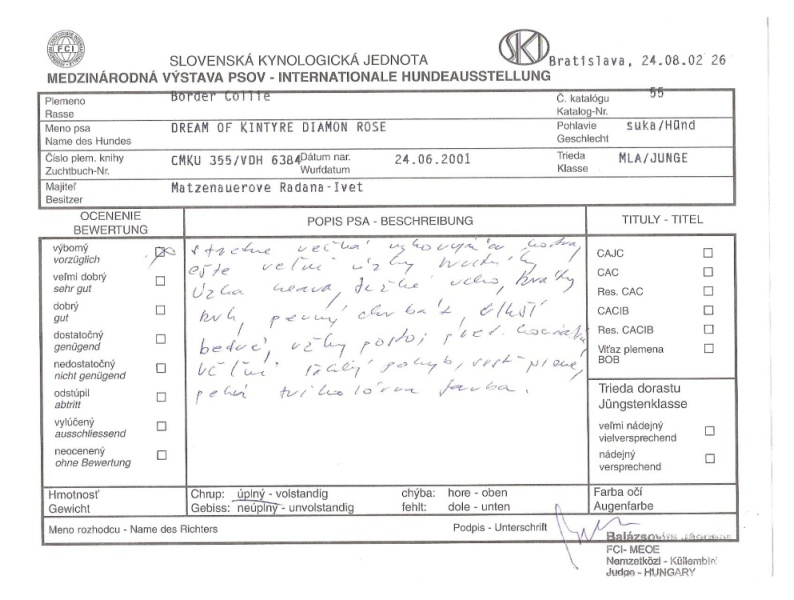 FCI
SKJ
SLOVENSKÁ KYNOLOGICKÁ JEDNOTA
Bratislava, 24.08.02 26
MEDZINÁRODNÁ VÝSTAVA PSOV - INTERNATIONALE HUNDEAUSSTELLUNG
Plemeno
Rasse
Border Collie
Č. katalógu
Katalog-Nr.
55
Meno psa
Name des Hundes
DREAM OF KINTYRE DIAMON ROSE
Pohlavie
Geschlecht
suka/Hünd
Číslo plem. knihy
Zuchtbuch-Nr.
CMKU 355/VDH 6384
Dátum nar.
Wurfdatum
24.06.2001
Trieda
Klasse
MLA/JUNGE
Majiteľ
Besitzer
Matzenauerove Radana-Ivet
OCENENIE
BEWERTUNG
výborný
vorzüglich
veľmi dobrý
sehr gut
dobrý
gut
dostatočný
genügend
nedostatočný
nicht genügend
odstúpil
abtritt
vylúčený
ausschliessend
neocenený
ohne Bewertung
POPIS PSA - BESCHREIBUNG
stredne veľká
ešte veľmi úzky
úzka hlava, ťažké ucho, krátky
krk, pevný chrbát,
postoj pred.
pohyb,
pekná farba.
TITULY - TITEL
CAJC
CAC
Res. CAC
CACIB
Res. CACIB
Víťaz plemena
BOB
Trieda dorastu
Jüngstenklasse
veľmi nádejný
vielversprechend
nádejný
versprechend
Hmotnosť
Gewicht
Chrup: úplný - volstandig
Gebiss: neúplný - unvolstandig
chýba: hore - oben
fehlt: dole - unten
Farba očí
Augenfarbe
Meno rozhodcu - Name des Richters
Podpis - Unterschrift
FCI- MEOE
Nemzetközi - Küllembíró
Judge - HUNGARY